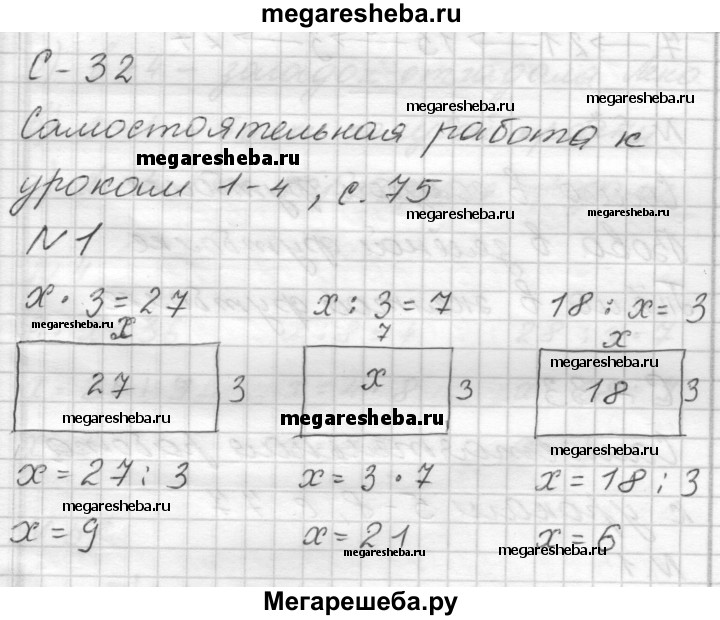 megaresheba.ru
С-32
megaresheba.ru megaresheba.ru
Самостоятельная работа к
megaresheba.ru
урокам 1-4, с. 75
megaresheba.ru megaresheba.ru
N 1
x · 3 = 27 x : 3 = 7 18 : x = 3
megaresheba.ru megaresheba.ru megaresheba.ru
x 7 x
27 3 x 3 18 3
megaresheba.ru
megaresheba.ru megaresheba.ru megaresheba.ru
megaresheba.ru
x = 27 : 3 x = 3 · 7 x = 18 : 3
megaresheba.ru megaresheba.ru
x = 9 x = 21 x = 6
megaresheba.ru megaresheba.ru
Мегарешеба.ру